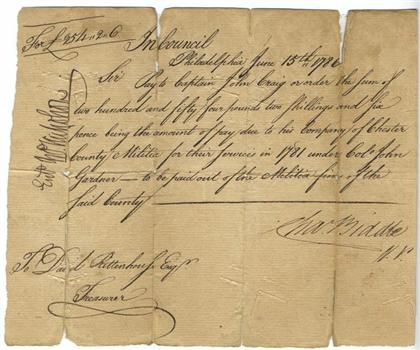 For £ 254 „ 2 „ 6
In Council
Philadelphia June 15th 1786
Sir
Pay to Captain John Craig or order the Sum of
two hundred and fifty four pounds two Shillings and Six
pence being the amount of pay due to his Company of Chester
County Militia for their Service in 1781 under Colo. John
Gardner — to be paid out of the Militia fines of the
said County
Chas Biddle
V. P.
To David Rittenhouse Esqr
Treasurer
Entd